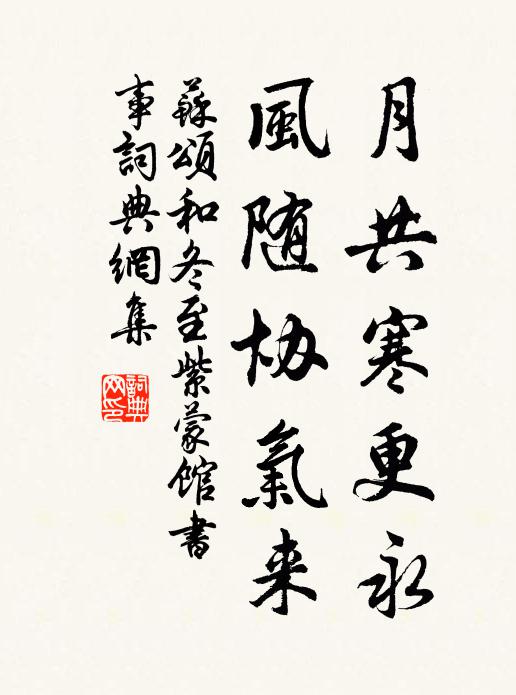 月共寒更永
風随协氣来
蘇頌和冬至紫蒙館書
事詞典網集
詞典
网印